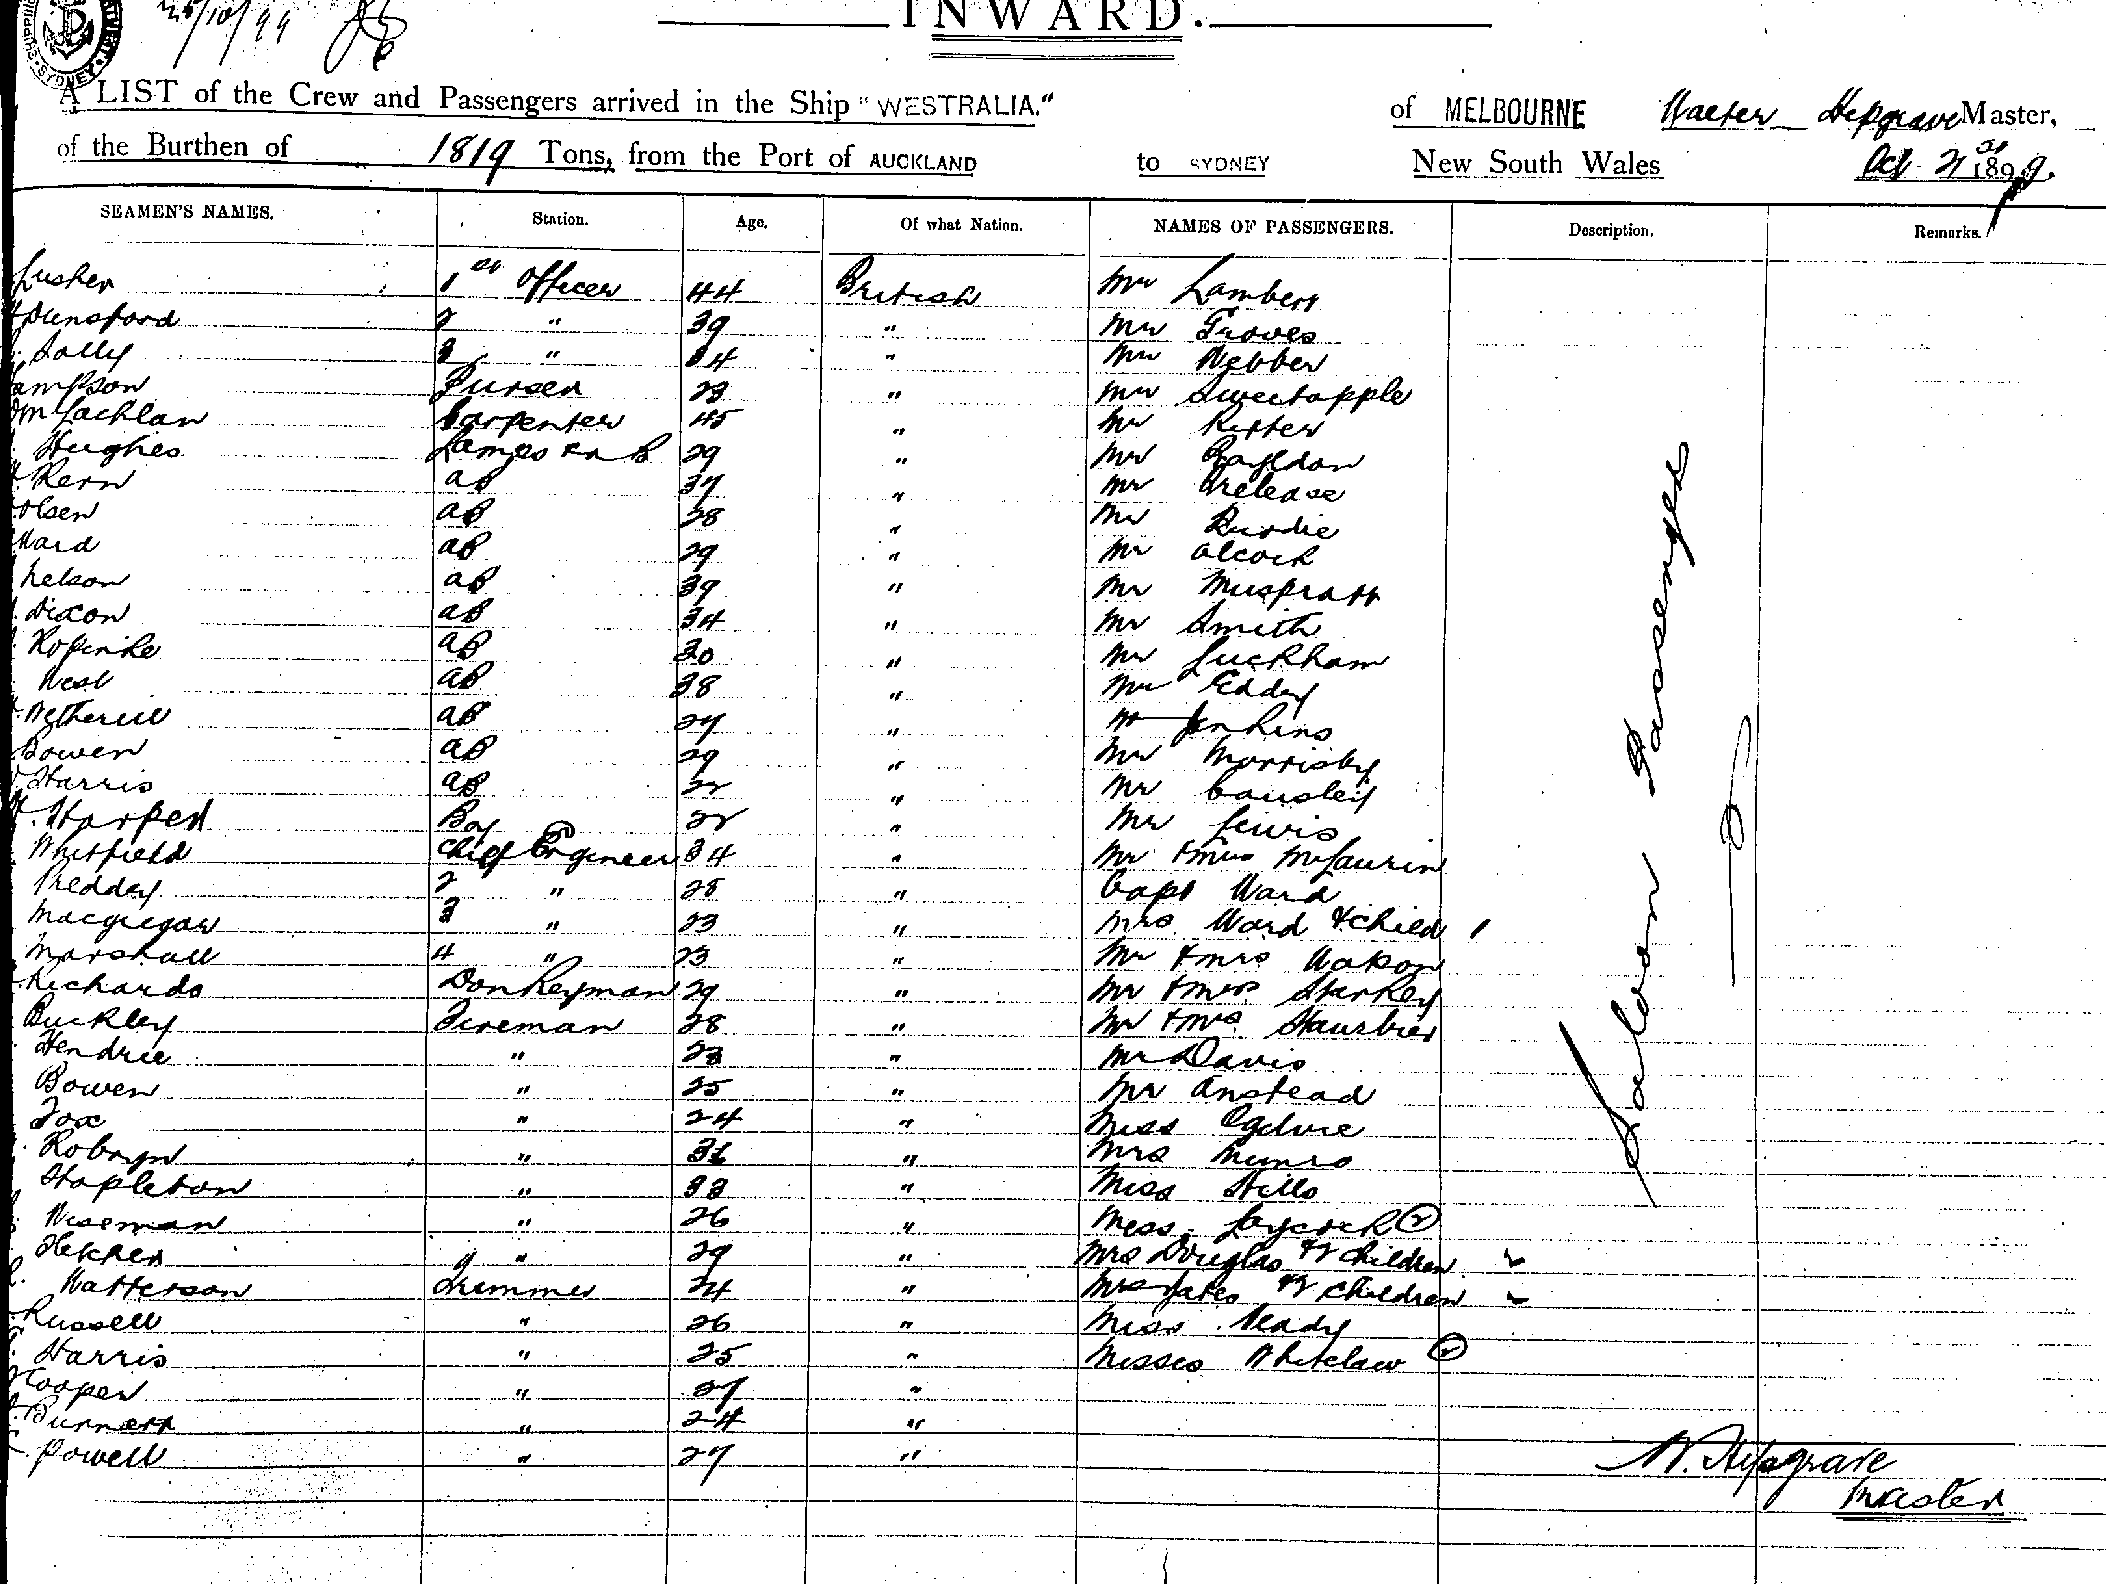 25/10/99
INWARD.
A LIST of the Crew and Passengers arrived in the Ship "WESTRALIA." of MELBOURNE Walter Hipgrave Master,
of the Burthen of 1819 Tons, from the Port of AUCKLAND to SYDNEY New South Wales Oct 21st 1899.
SEAMEN'S NAMES. Station. Age. Of what Nation. NAMES OF PASSENGERS. Description. Remarks.
Lusher 1st Officer 44 British Mr Lambert
Dunsford 2 " 39 " Mr Groves
Jolly 3 " 34 " Mr Webber
Sampson Purser 28 " Mr Sweetapple
McLachlan Carpenter 45 " Mr Ritter
Hughes Lamps & AB 29 " Mr Bayldon
Kern AB 37 " Mr Trelease
Olsen AB 28 " Mr Purdie
Ward AB 29 " Mr Alcock
Nelson AB 39 " Mr Muspratt
Dixon AB 34 " Mr Smith
AB 30 " Mr Luckham
West AB 38 " Mr Eddy
Wetherill AB 27 " Jenkins
Bowen AB 29 " Mr Morrisby
Harris AB 22 " Mr Causley
Harper Boy 22 " Mr Lewis
Whitfield Chief Engineer 34 " Mr & Mrs McLaurin
Preddey 2 " 25 " Capt Ward
Macgregor 3 " 23 " Mrs Ward & Child 1
Marshall 4 " 23 " Mr & Mrs
Richards Donkeyman 29 " Mr & Mrs Starkey
Buckley Fireman 28 " Mr & Mrs
Hendrie " 23 " Mr Davis
Bowen " 25 " Mr Anstead
Fox " 24 " Miss Ogilvie
Robryn " 31 " Mrs Munro
Stapleton " 33 " Miss Hills
Wiseman " 26 " Miss Laycock 2
" 29 " Mrs Douglas & 2 Children 2
Watterson Trimmer 24 " Mrs Yates & 2 Children 2
Russell " 26 " Miss Neady
Harris " 25 " Misses Whitelaw 2
Cooper " 27 "
Burnett " 24 "
Powell " 27 "
Saloon Passengers
W. Hipgrave
Master